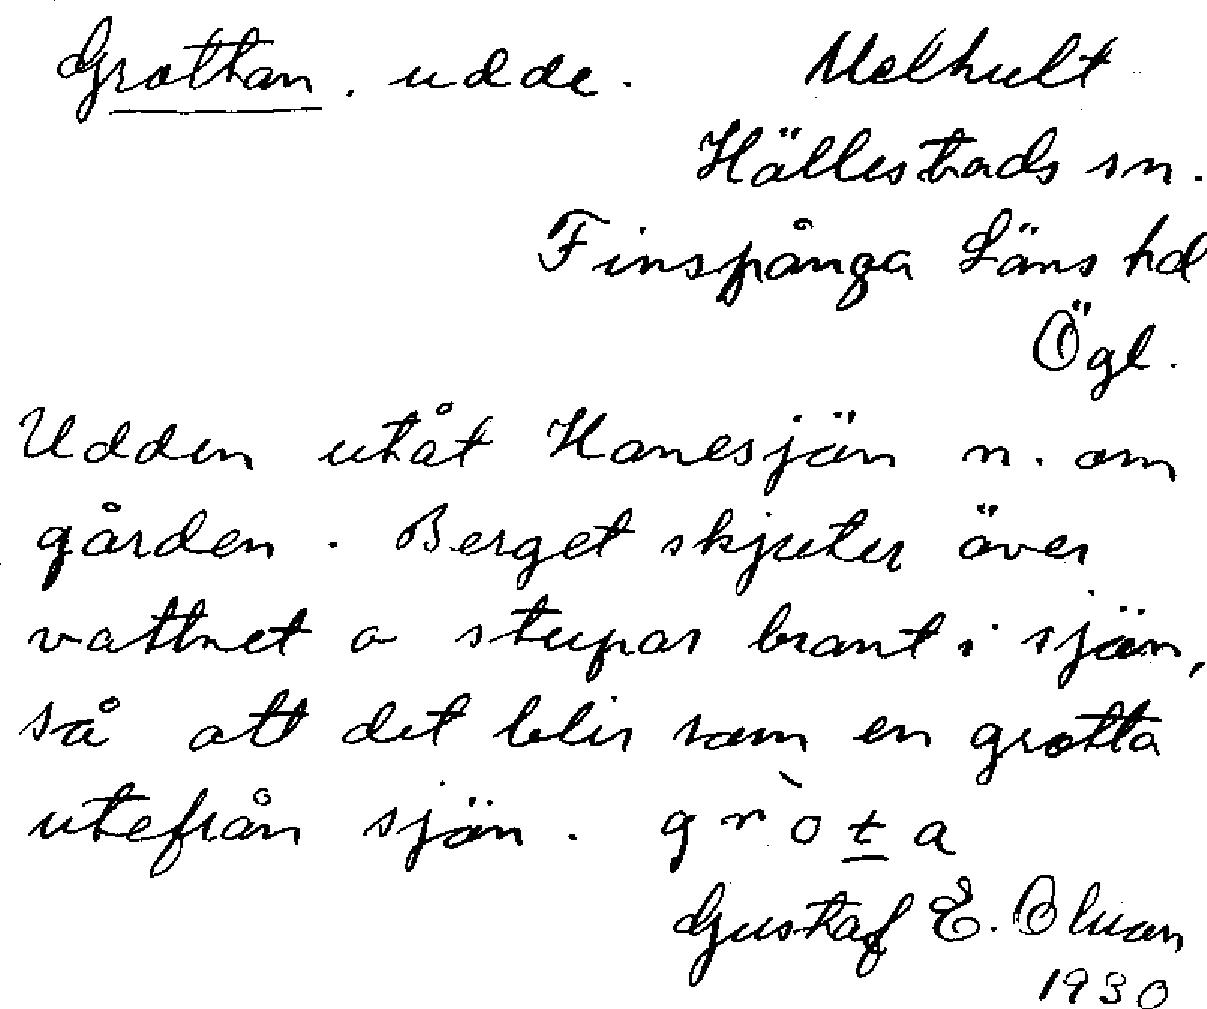 Grottan. udde. Melhult
Hällestads sn.
Finspånga Läns hd
Ögl.
Udden utåt Hanesjön n. om
gården. Berget skjuter över
vattnet o stupar brant i sjön,
så att det blir som en grotta
utefrån sjön. gròta
Gustaf E. Oluan
1930